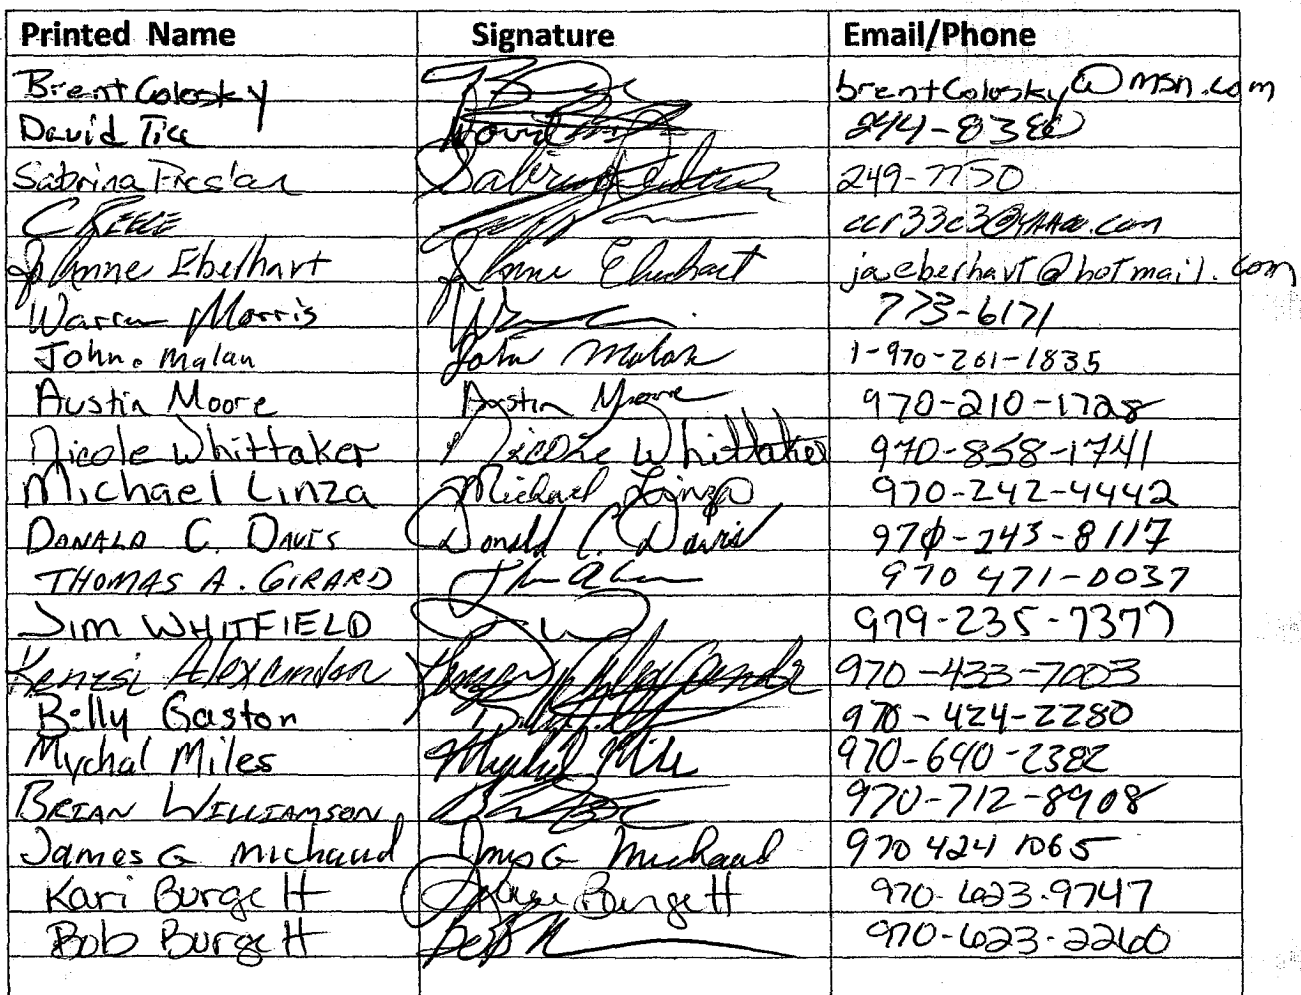 Printed Name Signature Email/Phone
Brent Colosky brentColosky@msn.com
David Tice David 244-8380
Sabrina Sabrina 249-7750
C REECE ccr33c3@yahoo.com
JoAnne Eberhart JoAnne Eberhart jaeberhart@hotmail.com
Warren Morris 773-6171
John. Malan John Malan 1-970-201-1835
Austin Moore Austin Moore 970-210-1728
Nicole Whittaker Nicole Whittaker 970-858-1741
Michael Linza Michael Linza 970-242-4442
DONALD C. DAVIS Donald C. Davis 970-243-8117
THOMAS A. GIRARD 970 471-0037
JIM WHITFIELD 979-235-7377
Alexander Alexander 970-433-7003
Billy Gaston 970-424-2280
Mychal Miles Mychal Mile 970-640-2382
BRIAN WILLIAMSON 970-712-8908
James G michaud James G Michaud 970 424 1065
Kari Burgett Kari Burgett 970-623-9747
Bob Burgett 970-623-2260